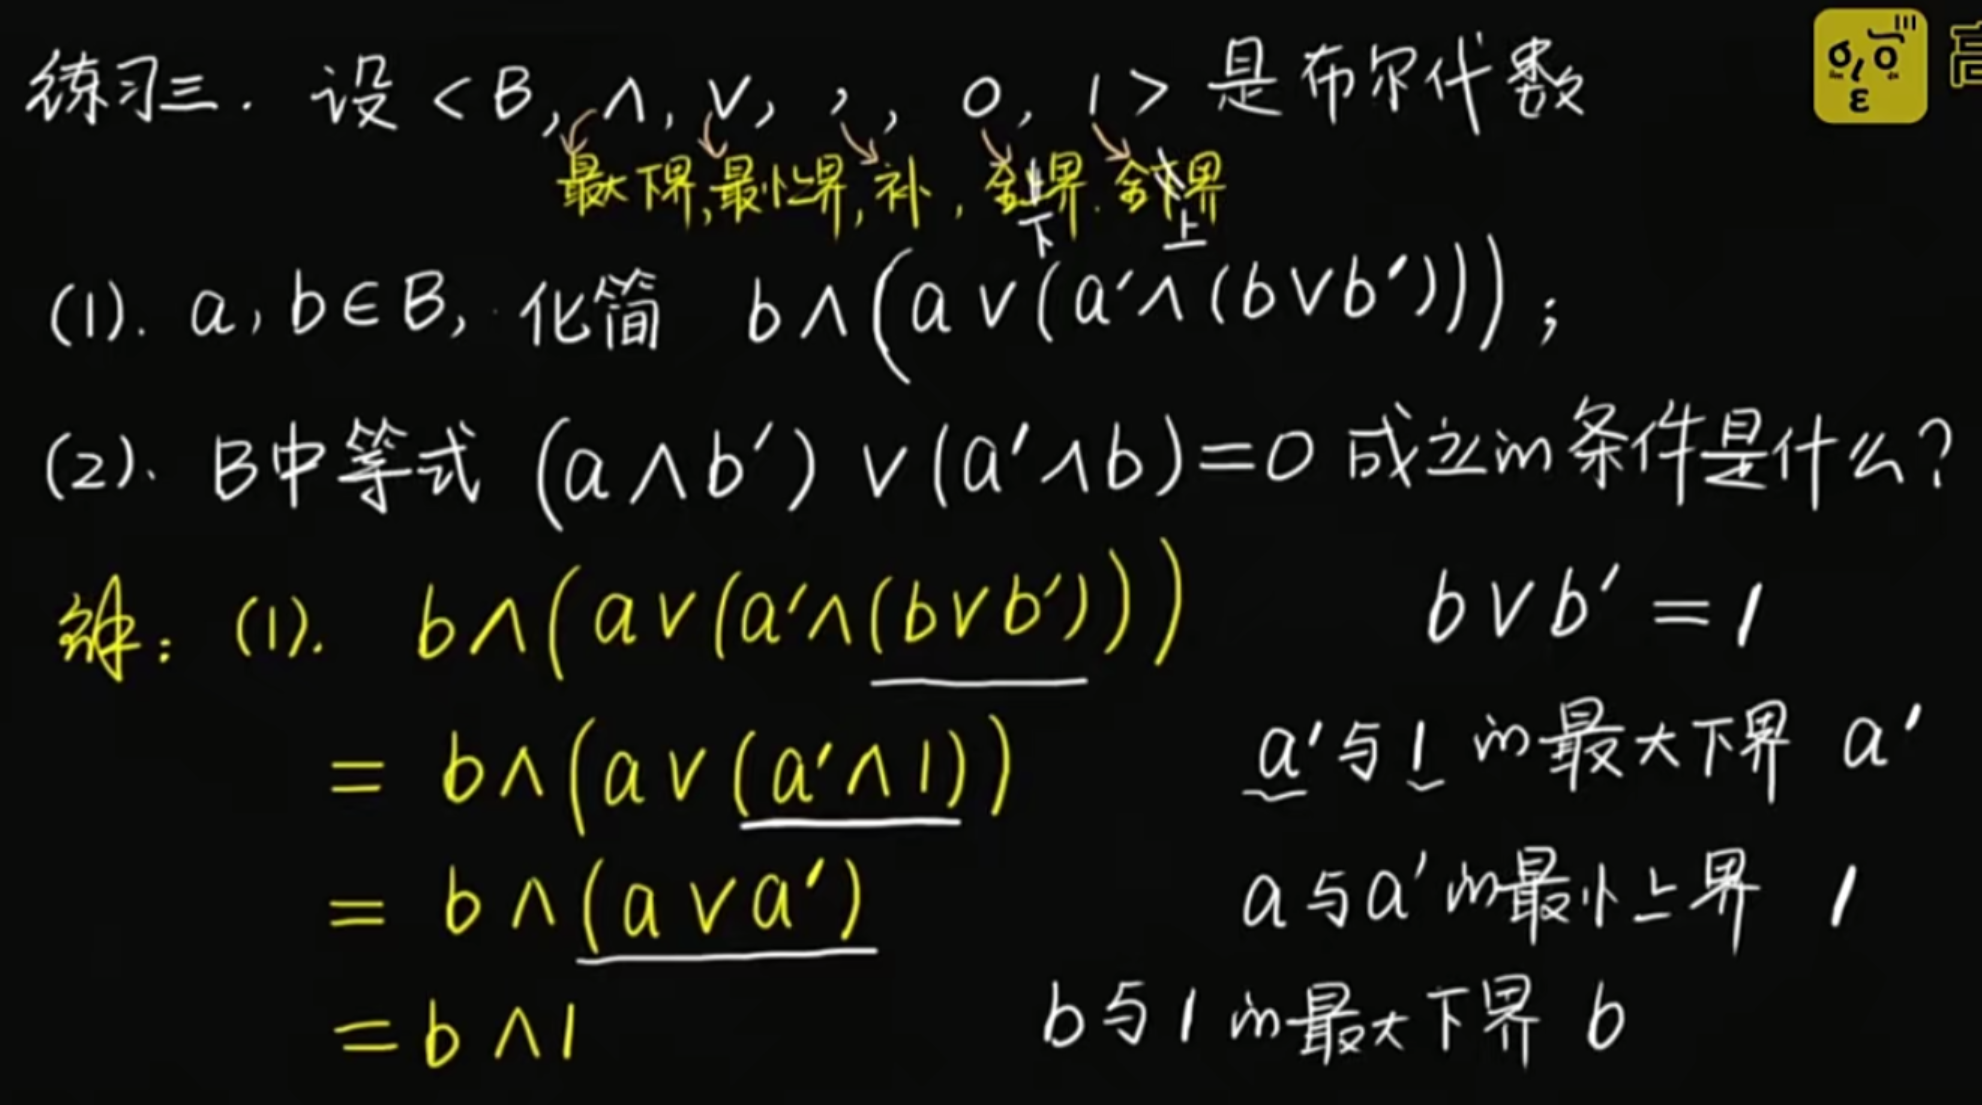 练习三. 设 < B, ∧, ∨, ′, 0, 1 > 是布尔代数
最大下界, 最小上界, 补, 全上界. 全下界
下 上
(1). a, b∈B, 化简 b∧(a∨(a′∧(b∨b′)));
(2). B中等式 (a∧b′)∨(a′∧b)=0 成立的条件是什么?
解: (1). b∧(a∨(a′∧(b∨b′))) b∨b′=1
= b∧(a∨(a′∧1)) a′与1的最大下界 a′
= b∧(a∨a′) a与a′的最小上界 1
= b∧1 b与1的最大下界 b